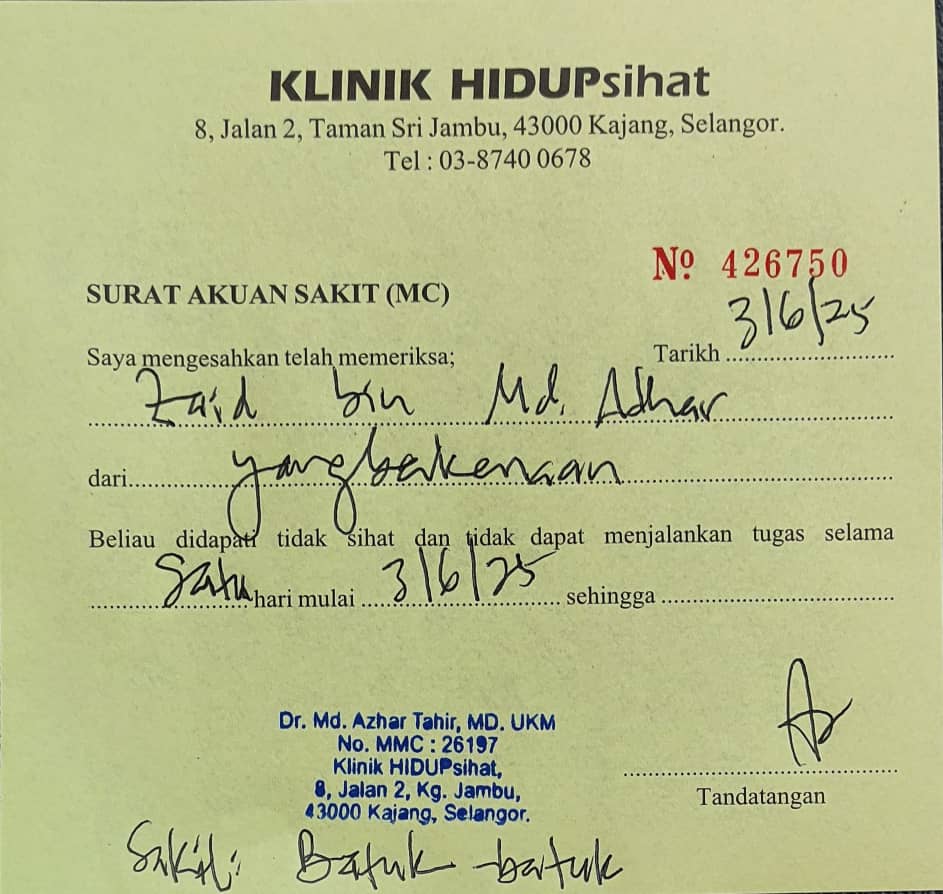 KLINIK HIDUPsihat
8, Jalan 2, Taman Sri Jambu, 43000 Kajang, Selangor.
Tel : 03-8740 0678
Nº 426750
SURAT AKUAN SAKIT (MC)
Saya mengesahkan telah memeriksa; Tarikh 3/6/25
Zaid bin Md. Adhar
dari yang berkenaan
Beliau didapati tidak sihat dan tidak dapat menjalankan tugas selama
Satu hari mulai 3/6/25 sehingga
Dr. Md. Azhar Tahir, MD. UKM
No. MMC : 26197
Klinik HIDUPsihat,
8, Jalan 2, Kg. Jambu,
43000 Kajang, Selangor.
Tandatangan
Sakit: Batuk-batuk